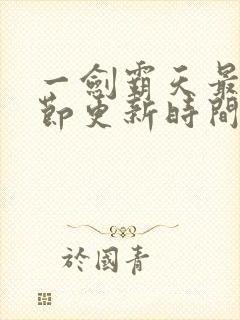 一劍霸天最
節更新時間
於國青